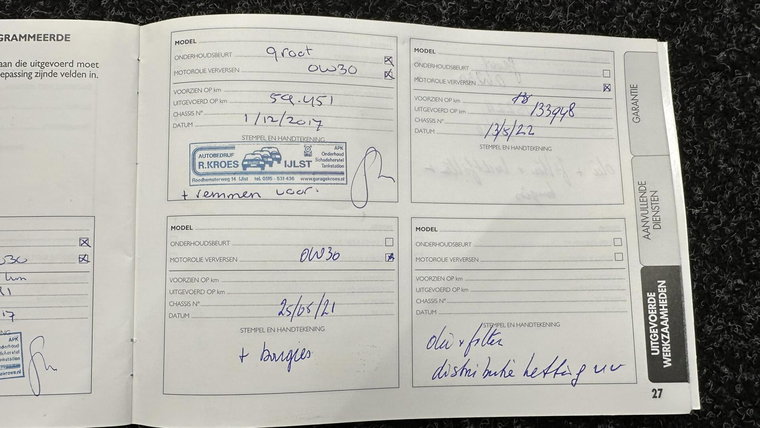 GRAMMEERDE
aan die uitgevoerd moet
epassing zijnde velden in.
APK
MODEL
ONDERHOUDSBEURT groot
MOTOROLIE VERVERSEN 0W30
VOORZIEN OP km
UITGEVOERD OP km 59.451
CHASSIS N°
DATUM 1/12/2017
STEMPEL EN HANDTEKENING
AUTOBEDRIJF
R.KROES IJLST
APK
Onderhoud
Schadeherstel
Tankstation
Roodhemsterweg 14 IJlst tel. 0515 - 531 436 www.garagekroes.nl
+ remmen voor.
MODEL
ONDERHOUDSBEURT
MOTOROLIE VERVERSEN 0W30
VOORZIEN OP km
UITGEVOERD OP km
CHASSIS N°
DATUM 25/05/21
STEMPEL EN HANDTEKENING
+ bougies
MODEL
ONDERHOUDSBEURT
MOTOROLIE VERVERSEN
VOORZIEN OP km
UITGEVOERD OP km 133948
CHASSIS N°
DATUM 13/5/22
STEMPEL EN HANDTEKENING
MODEL
ONDERHOUDSBEURT
MOTOROLIE VERVERSEN
VOORZIEN OP km
UITGEVOERD OP km
CHASSIS N°
DATUM
STEMPEL EN HANDTEKENING
olie + filter
distributie ketting
GARANTIE
AANVULLENDE
DIENSTEN
UITGEVOERDE
WERKZAAMHEDEN
27